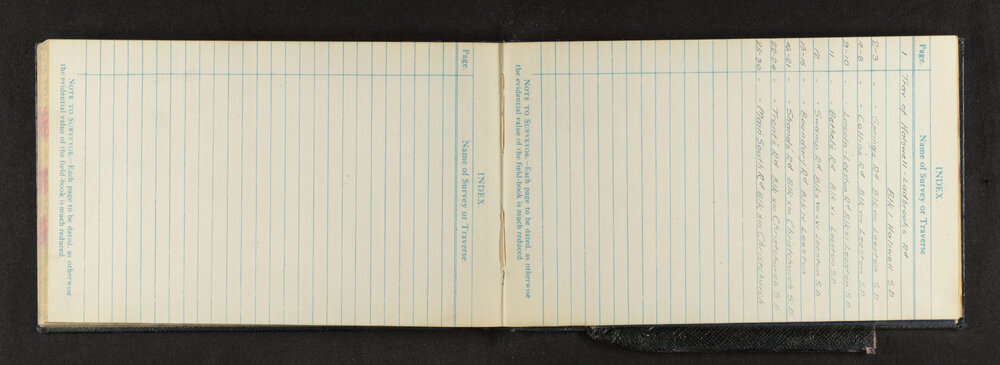 INDEX
Page. Name of Survey or Traverse
1 Trav of Halswell - Ladbrooks Rd
Blk I Halswell S.D.
2-3 " " Springs Rd Blk Leeston S.D.
" " Collins Rd Blk VIII Leeston S.D.
9-10 " " Lincoln-Leeston Rd Blk Leeston S.D.
11 " Bethels Rd Blk XI Leeston S.D.
12 " " Swamp Rd Blk Leeston S.D.
13-15 " " Boundary Rd Blk IV Leeston
16-21 " " Shands Rd Blk XIII Christchurch S.D.
22-24 " " Trents Rd Blk XIII Christchurch S.D.
25-30 " " Main South Rd Blk XIII Christchurch
NOTE TO SURVEYOR.—Each page to be dated, as otherwise
the evidential value of the field-book is much reduced.
INDEX
Page. Name of Survey or Traverse
NOTE TO SURVEYOR.—Each page to be dated, as otherwise
the evidential value of the field-book is much reduced.